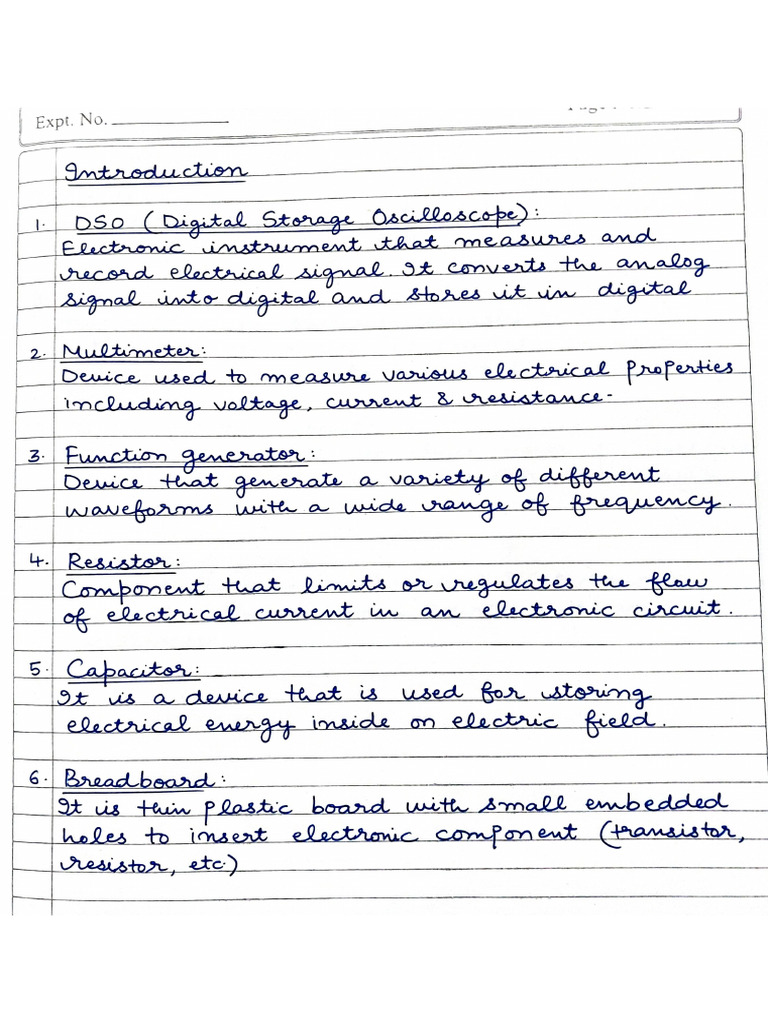 Expt. No.
Introduction
1. DSO (Digital Storage Oscilloscope):
Electronic instrument that measures and
record electrical signal. It converts the analog
signal into digital and stores it in digital
2. Multimeter:
Device used to measure various electrical properties
including voltage, current & resistance-
3. Function generator:
Device that generate a variety of different
waveforms with a wide range of frequency.
4. Resistor:
Component that limits or regulates the flow
of electrical current in an electronic circuit.
5. Capacitor:
It is a device that is used for storing
electrical energy inside on electric field.
6. Breadboard:
It is thin plastic board with small embedded
holes to insert electronic component (transistor,
resistor, etc.)